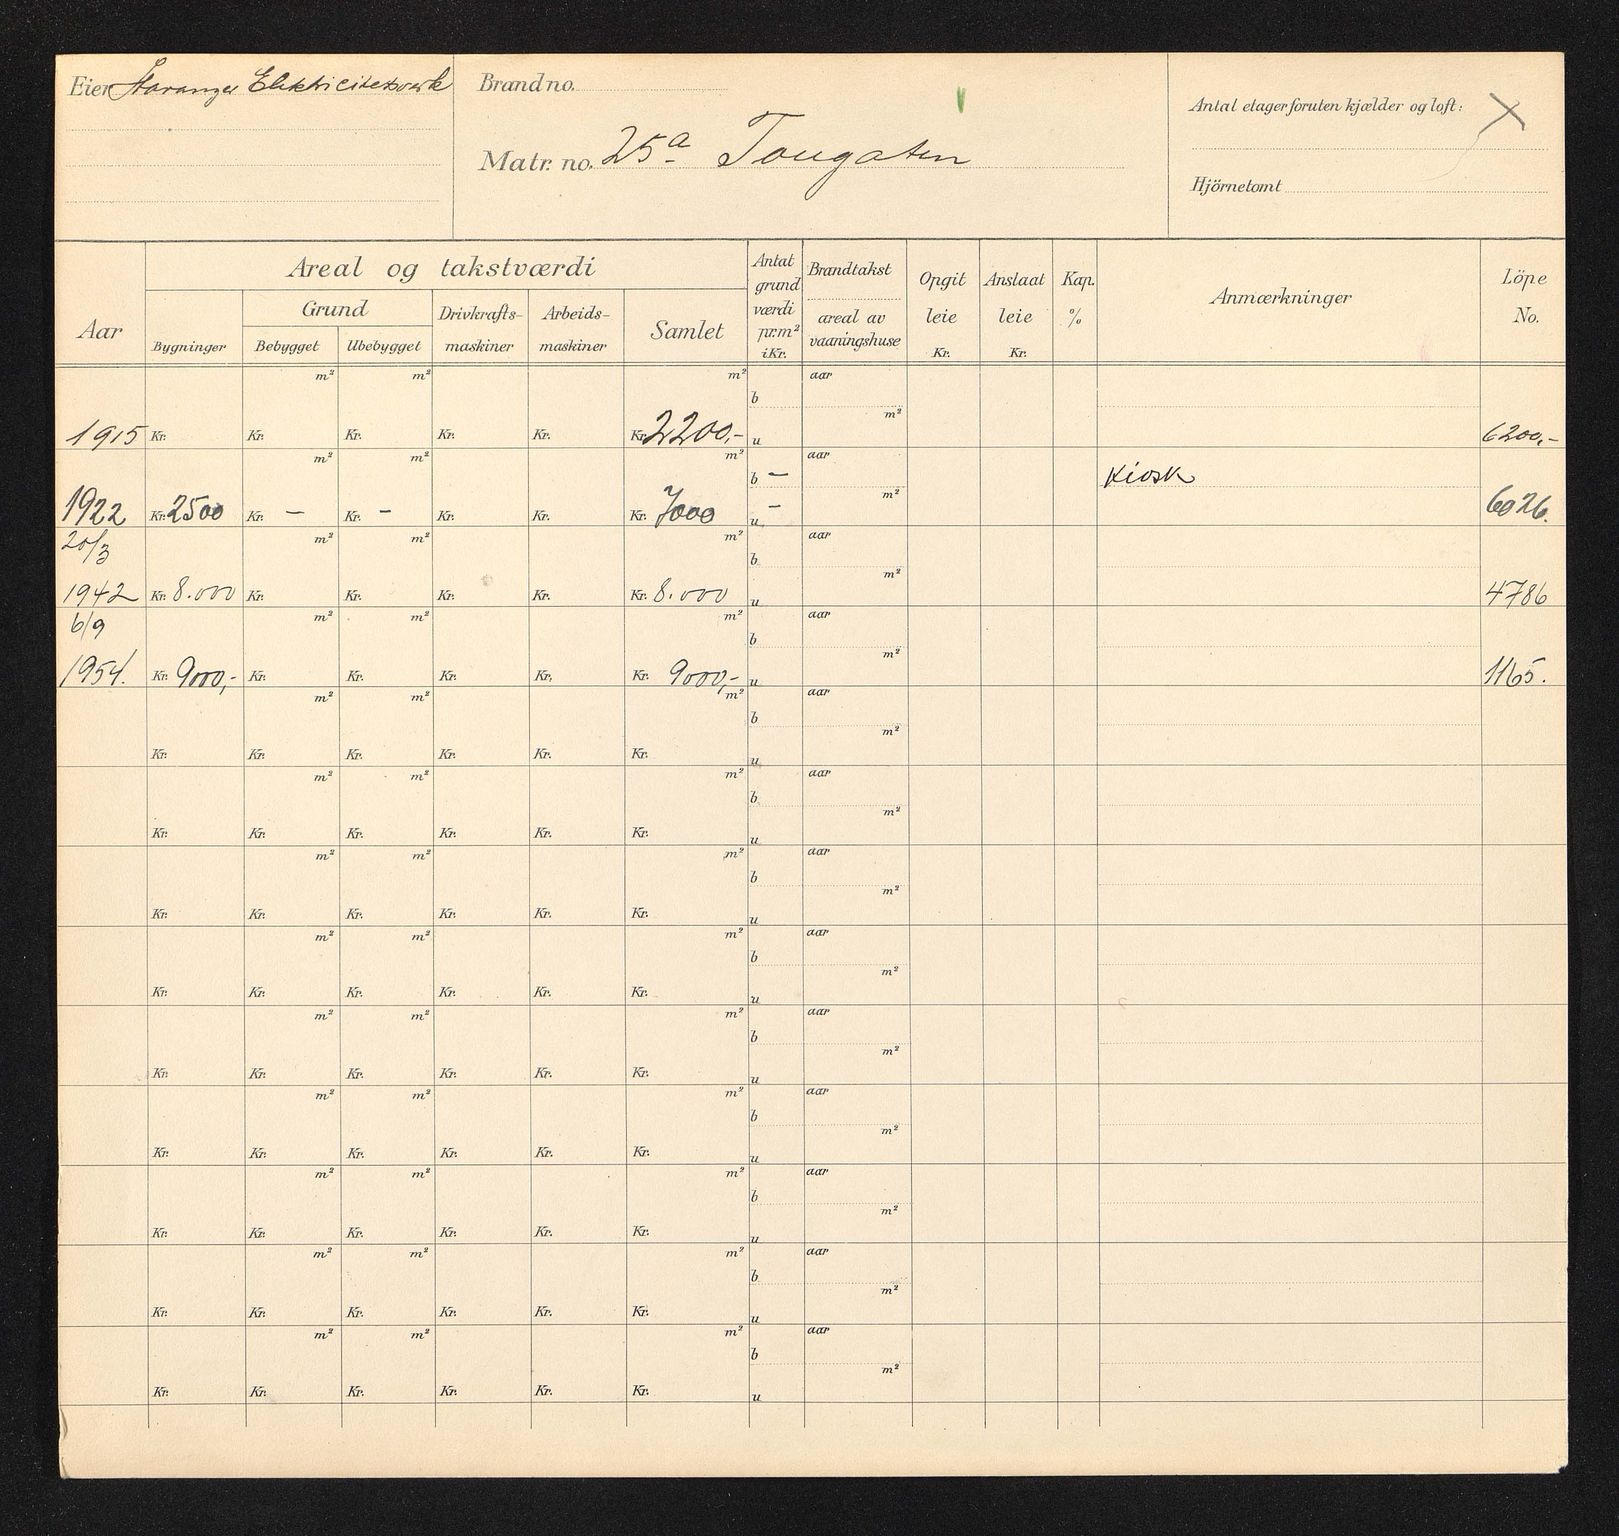 Eier Stavanger Elektricitetsverk
Brand no.
Matr. no. 25a Tougaten
Antal etager foruten kjælder og loft:
Hjörnetomt
Aar
Areal og takstværdi
Bygninger
Grund
Bebygget
Ubebygget
Drivkrafts-
maskiner
Arbeids-
maskiner
Samlet
Antat
grund
værdi
pr.m²
i Kr.
Brandtakst
areal av
vaaningshuse
Opgit
leie
Kr.
Anslaat
leie
Kr.
Kap.
%
Anmærkninger
Löpe
No.
m² m² m² b aar
m²
1915 Kr. Kr. Kr. Kr. Kr. Kr. 2200,- u 6200,-
m² m² m² b – aar Kiosk
m²
1922 Kr. 2500 Kr. – Kr. – Kr. Kr. Kr. 7000 u – 6026.
20/3 m² m² m² b aar
m²
1942 Kr. 8.000 Kr. Kr. Kr. Kr. Kr. 8.000 u 4786
6/9 m² m² m² b aar
m²
1954. Kr. 9000,- Kr. Kr. Kr. Kr. Kr. 9000,- u 1165.
m² m² m² b aar
m²
Kr. Kr. Kr. Kr. Kr. Kr. u
m² m² m² b aar
m²
Kr. Kr. Kr. Kr. Kr. Kr. u
m² m² m² b aar
m²
Kr. Kr. Kr. Kr. Kr. Kr. u
m² m² m² b aar
m²
Kr. Kr. Kr. Kr. Kr. Kr. u
m² m² m² b aar
m²
Kr. Kr. Kr. Kr. Kr. Kr. u
m² m² m² b aar
m²
Kr. Kr. Kr. Kr. Kr. Kr. u
m² m² m² b aar
m²
Kr. Kr. Kr. Kr. Kr. Kr. u
m² m² m² b aar
m²
Kr. Kr. Kr. Kr. Kr. Kr. u
m² m² m² b aar
m²
Kr. Kr. Kr. Kr. Kr. Kr. u